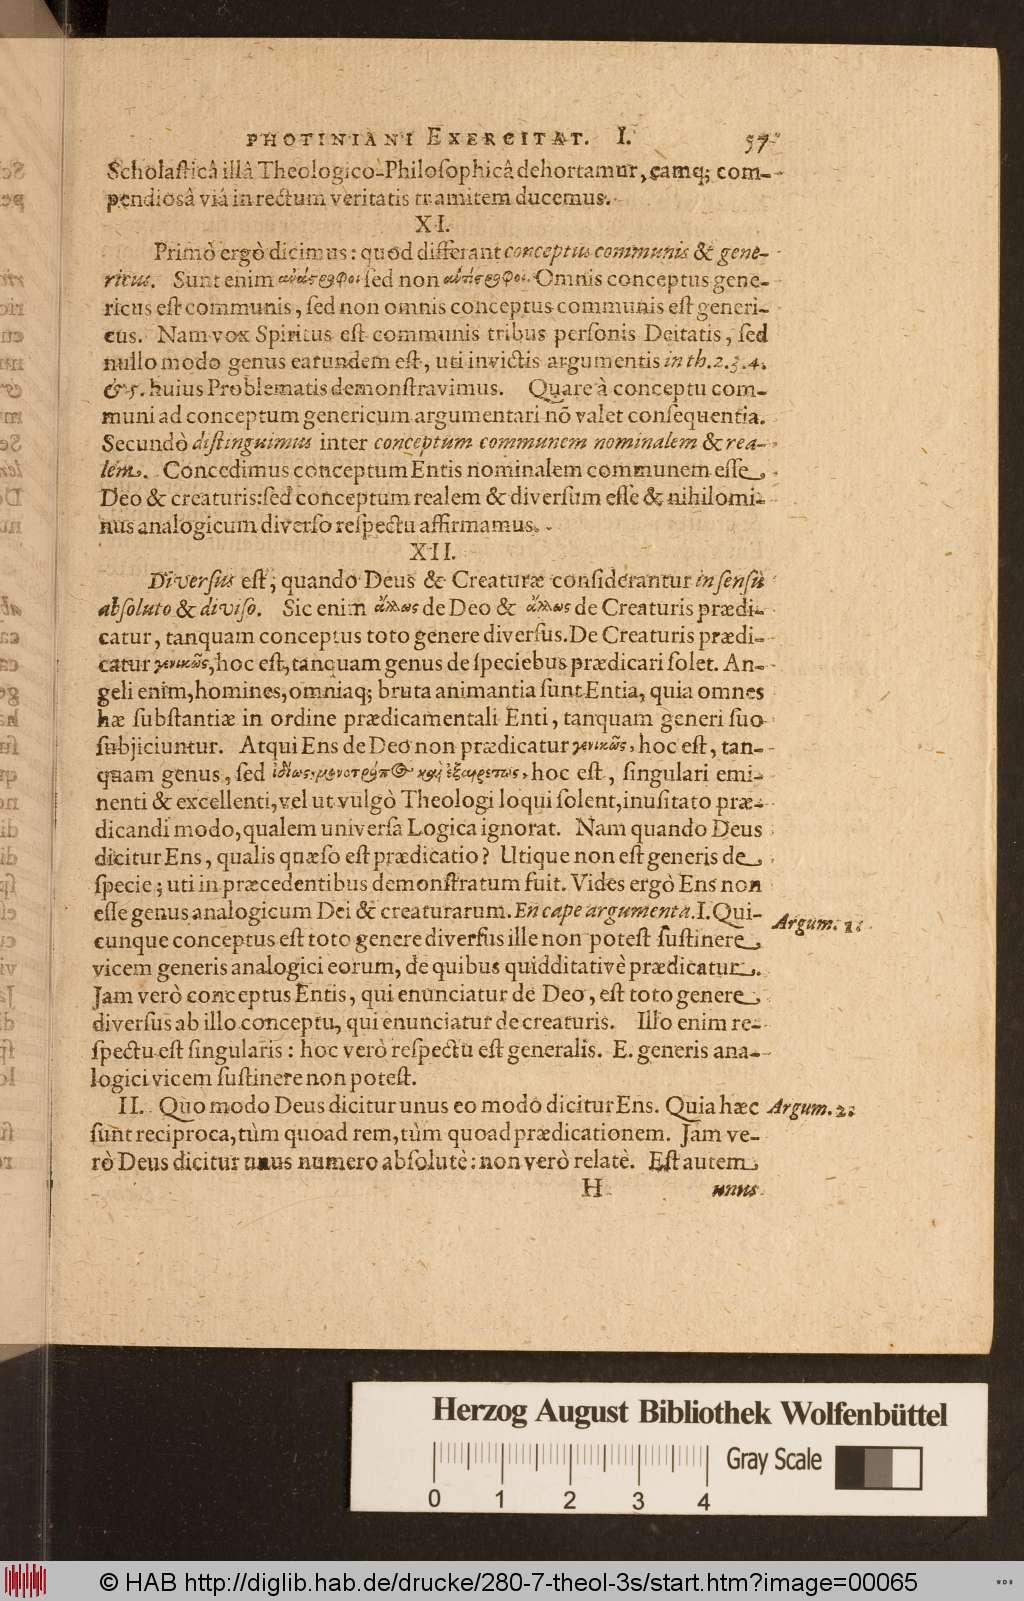 PHOTINIANI EXERCITAT. I. 57
Scholasticâ illâ Theologico-Philosophicâ dehortamur, eamq; com-
pendiosâ viâ in rectum veritatis tramitem ducemus.
XI.
Primò ergò dicimus: quod differant conceptus communis & gene-
ricus. Sunt enim sed non Omnis conceptus gene-
ricus est communis, sed non omnis conceptus communis est generi-
cus. Nam vox Spiritus est communis tribus personis Deitatis, sed
nullo modo genus earundem est, uti invictis argumentis in th. 2. 3. 4.
& 5. huius Problematis demonstravimus. Quare à conceptu com-
muni ad conceptum genericum argumentari nō valet consequentia.
Secundò distinguimus inter conceptum communem nominalem & rea-
lem. Concedimus conceptum Entis nominalem communem esse
Deo & creaturis: sed conceptum realem & diversum esse & nihilomi-
nus analogicum diverso respectu affirmamus.
XII.
Diversus est, quando Deus & Creaturæ considerantur in sensu
absoluto & diviso. Sic enim ἄλλως de Deo & ἄλλως de Creaturis prædi-
catur, tanquam conceptus toto genere diversus. De Creaturis prædi-
catur γενικῶς, hoc est, tanquam genus de speciebus prædicari solet. An-
geli enim, homines, omniaq; bruta animantia sunt Entia, quia omnes
hæ substantiæ in ordine prædicamentali Enti, tanquam generi suo
subjiciuntur. Atqui Ens de Deo non prædicatur γενικῶς, hoc est, tan-
quam genus, sed ἰδίως, μονοτρόπως καὶ ἐξαιρέτως, hoc est, singulari emi-
nenti & excellenti, vel ut vulgò Theologi loqui solent, inusitato præ-
dicandi modo, qualem universa Logica ignorat. Nam quando Deus
dicitur Ens, qualis quæso est prædicatio? Utique non est generis de
specie; uti in præcedentibus demonstratum fuit. Vides ergò Ens non
esse genus analogicum Dei & creaturarum. En cape argumenta. I. Qui- Argum. 1.
cunque conceptus est toto genere diversus ille non potest sustinere
vicem generis analogici eorum, de quibus quidditativè prædicatur.
Jam verò conceptus Entis, qui enunciatur de Deo, est toto genere
diversus ab illo conceptu, qui enunciatur de creaturis. Illo enim re-
spectu est singularis: hoc verò respectu est generalis. E. generis ana-
logici vicem sustinere non potest.
II. Quo modo Deus dicitur unus eo modo dicitur Ens. Quia hæc Argum. 2.
sunt reciproca, tùm quoad rem, tùm quoad prædicationem. Jam ve-
rò Deus dicitur unus numero absolutè: non verò relatè. Est autem
H unus
Herzog August Bibliothek Wolfenbüttel
Gray Scale
0 1 2 3 4
© HAB http://diglib.hab.de/drucke/280-7-theol-3s/start.htm?image=00065